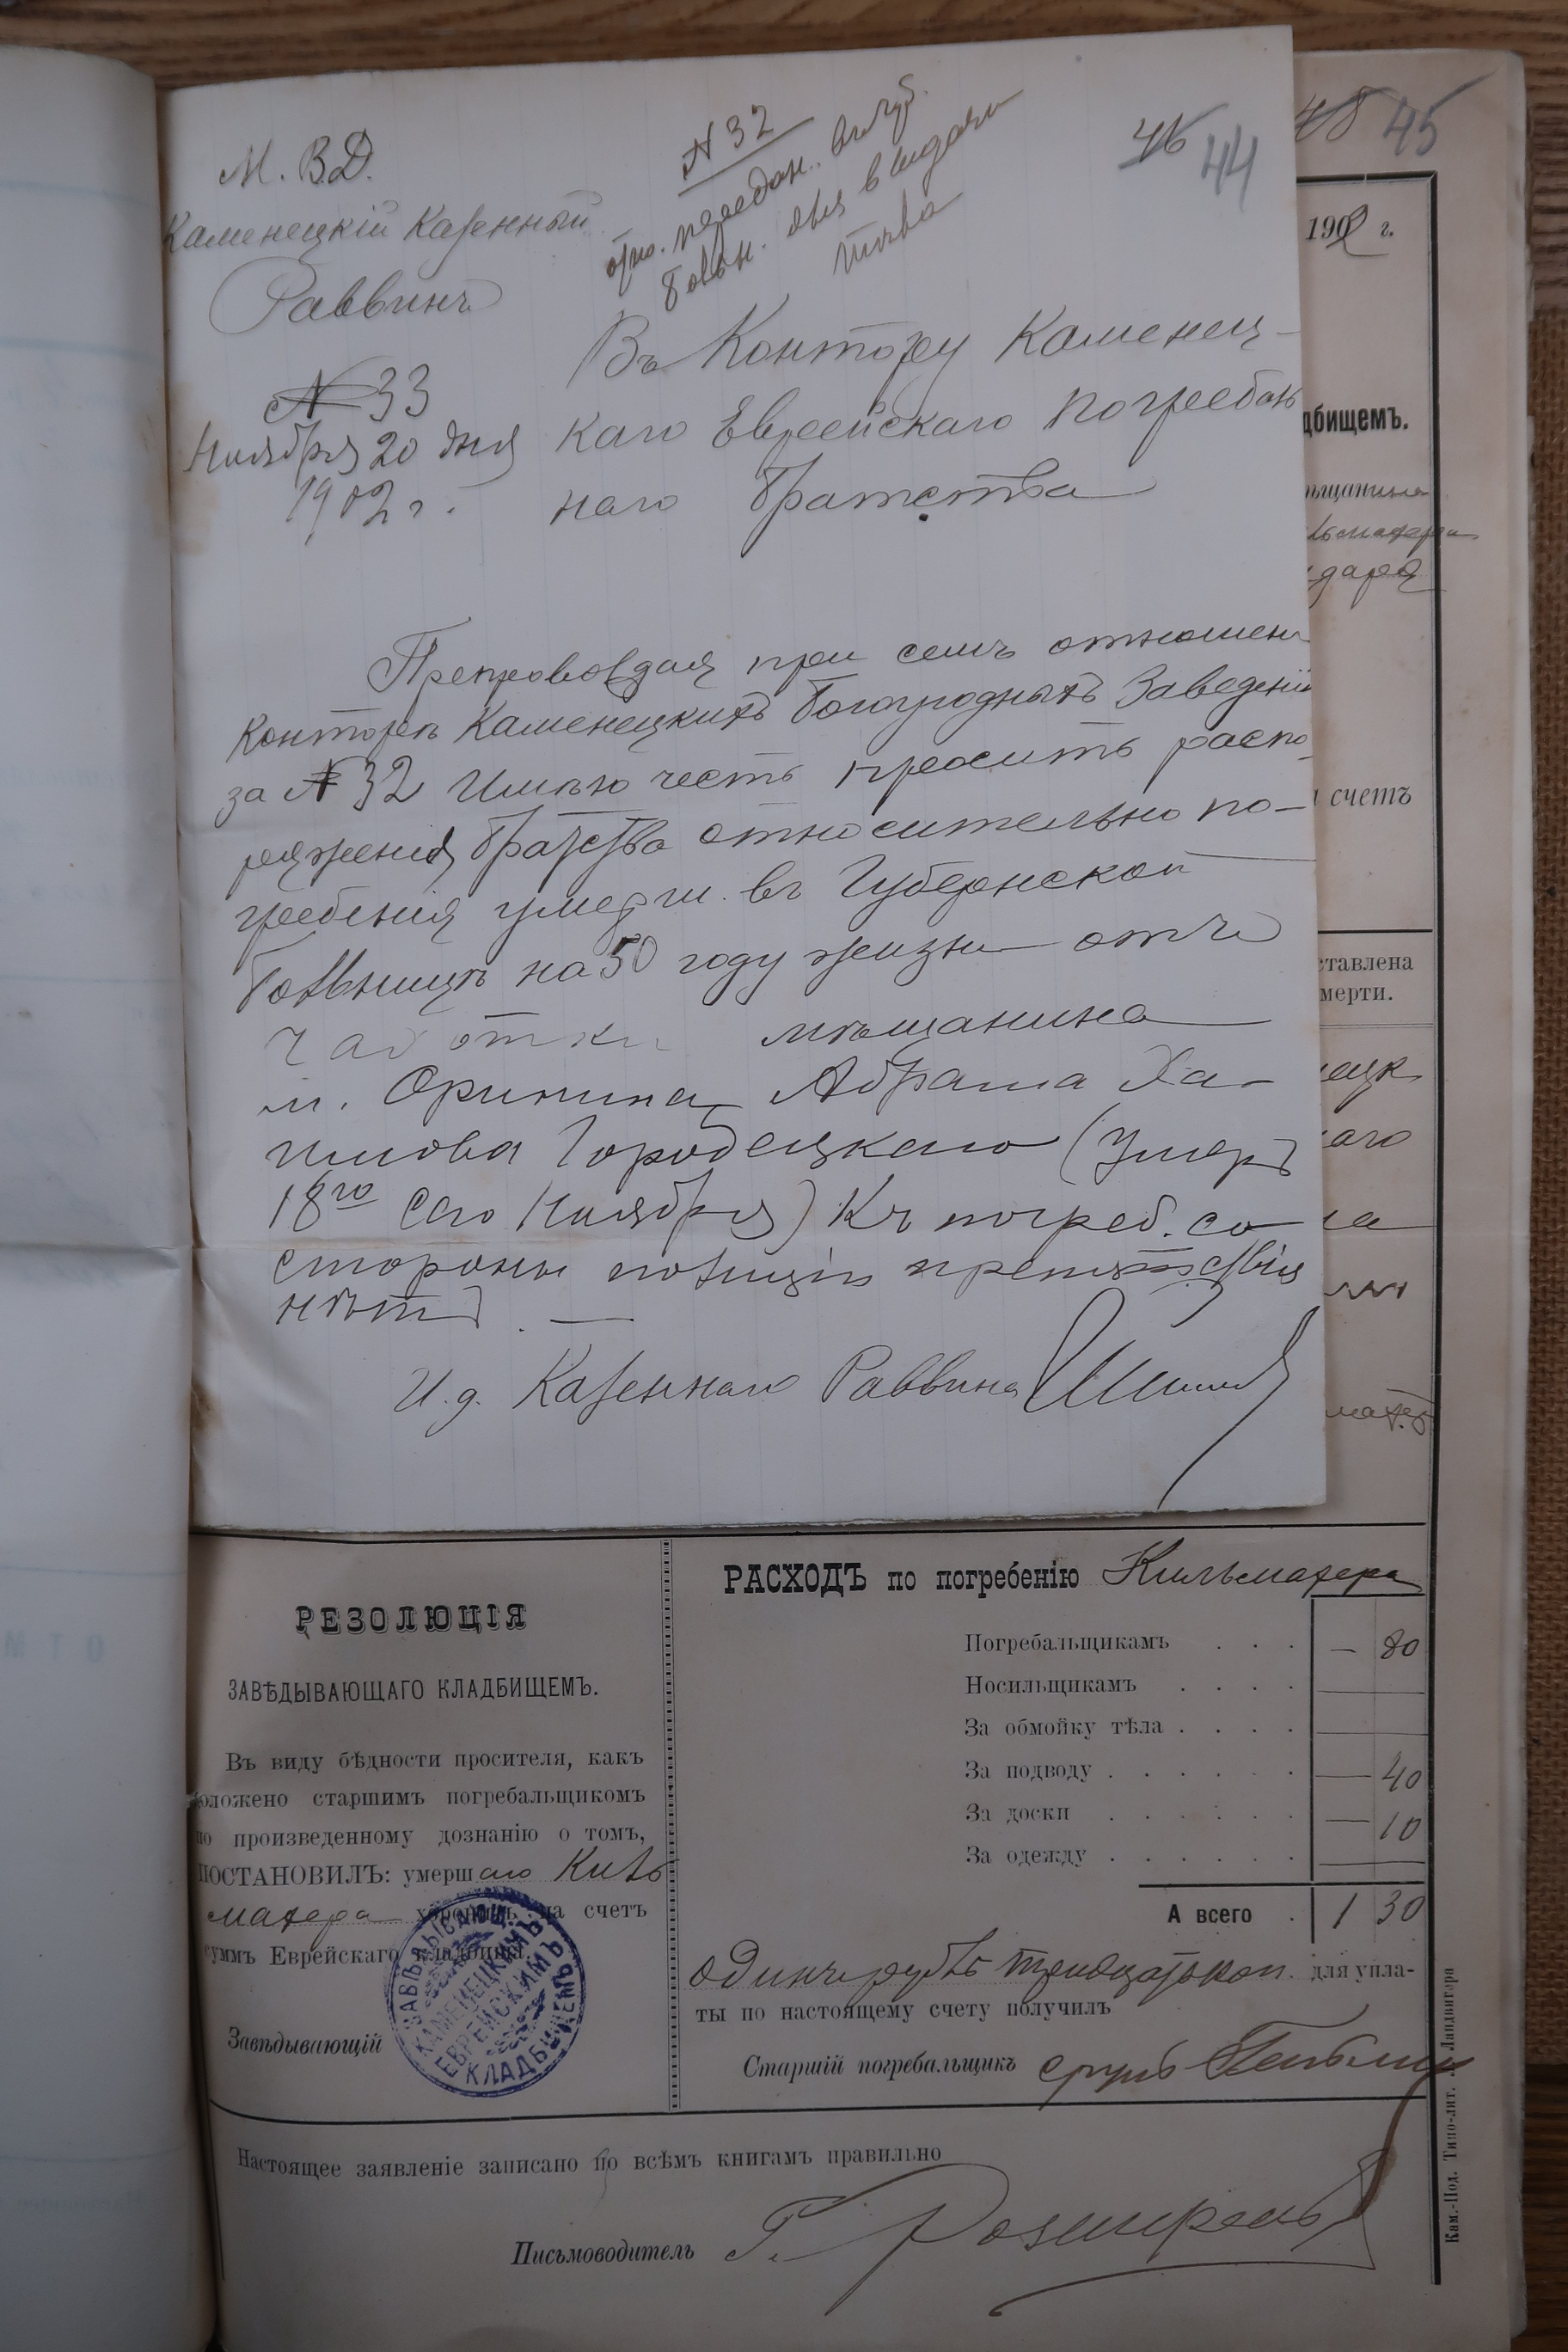 М. В. Д.
Каменецкій Казенный
Раввинъ
№ 33
Ноября 20 дня
1902 г.
№ 32
отно. передан. въ губ.
больн. для выдачи
тѣла
46 44
Въ Контору Каменец-
каго Еврейскаго погребаль
наго братства
Препровождая при семъ отношен
Конторы Каменецкихъ Богоугодныхъ Заведеній
за № 32 Имѣю честь просить распо
ряженія братства относительно по-
гребенія умерш. въ Губернской
больницѣ на 50 году жизни отъ
чахотки мѣщанина
м. Оринина Абрама Ха-
имова Городецкаго (Умеръ
18го сего Ноября) Къ погреб. со
стороны полиціи препятствія
нѣтъ. —
И. д. Казеннаго Раввина
48 45
1902 г.
дбищемъ.
ѣщанина
льмахера
счетъ
ставлена
мерти.
РЕЗОЛЮЦІЯ
ЗАВѢДЫВАЮЩАГО КЛАДБИЩЕМЪ.
Въ виду бѣдности просителя, какъ
оложено старшимъ погребальщикомъ
по произведенному дознанію о томъ,
ПОСТАНОВИЛЪ: умершаго Киль
махера хоронить на счетъ
суммъ Еврейскаго кладбища.
Завѣдывающій
ЗАВѢДЫВАЮЩ.
КАМЕНЕЦКИМЪ
ЕВРЕЙСКИМЪ
КЛАДБИЩЕМЪ
РАСХОДЪ по погребенію Кильмахера
Погребальщикамъ . . . — 80
Носильщикамъ . . . .
За обмойку тѣла . . . .
За подводу . . . . . . — 40
За доски . . . . . . — 10
За одежду . . . . . .
А всего . 1 30
одинъ рубль тридцать коп. для упла-
ты по настоящему счету получилъ
Старшій погребальщикъ
Настоящее заявленіе записано по всѣмъ книгамъ правильно
Письмоводитель
Кам.-Под. Типо-лит. Ландвигера